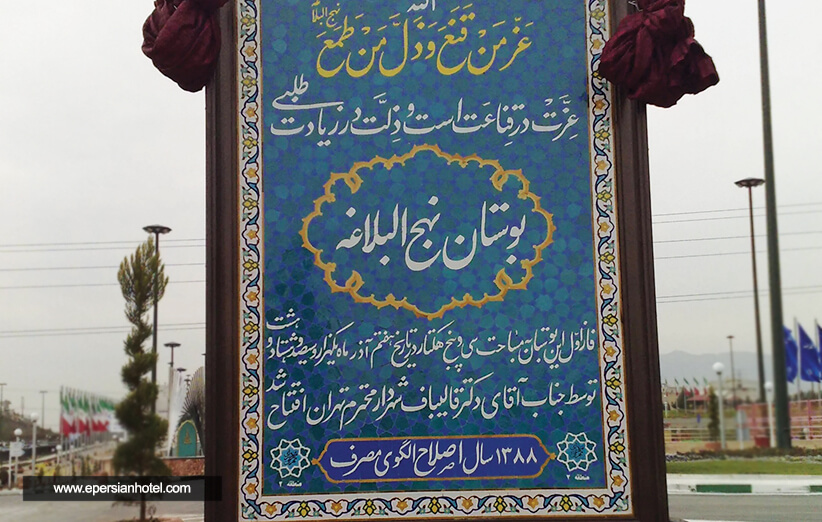 الله
عَزَّ مَنْ قَنَعَ وَ ذَلَّ مَنْ طَمَعَ نهج البلاغه
عِزَّت در قِناعَت است و ذِلَّت در زیادت طلبی
بوستان نهج البلاغه
فاز اول این بوستان به مساحت سی و پنج هکتار در تاریخ هفتم آذر ماه یکهزار و سیصد و هشتاد و هشت
توسط جناب آقای دکتر قالیباف شهردار محترم تهران افتتاح شد
۱۳۸۸ سال اصلاح الگوی مصرف
منطقه ۲
منطقه ۲
www.epersianhotel.com